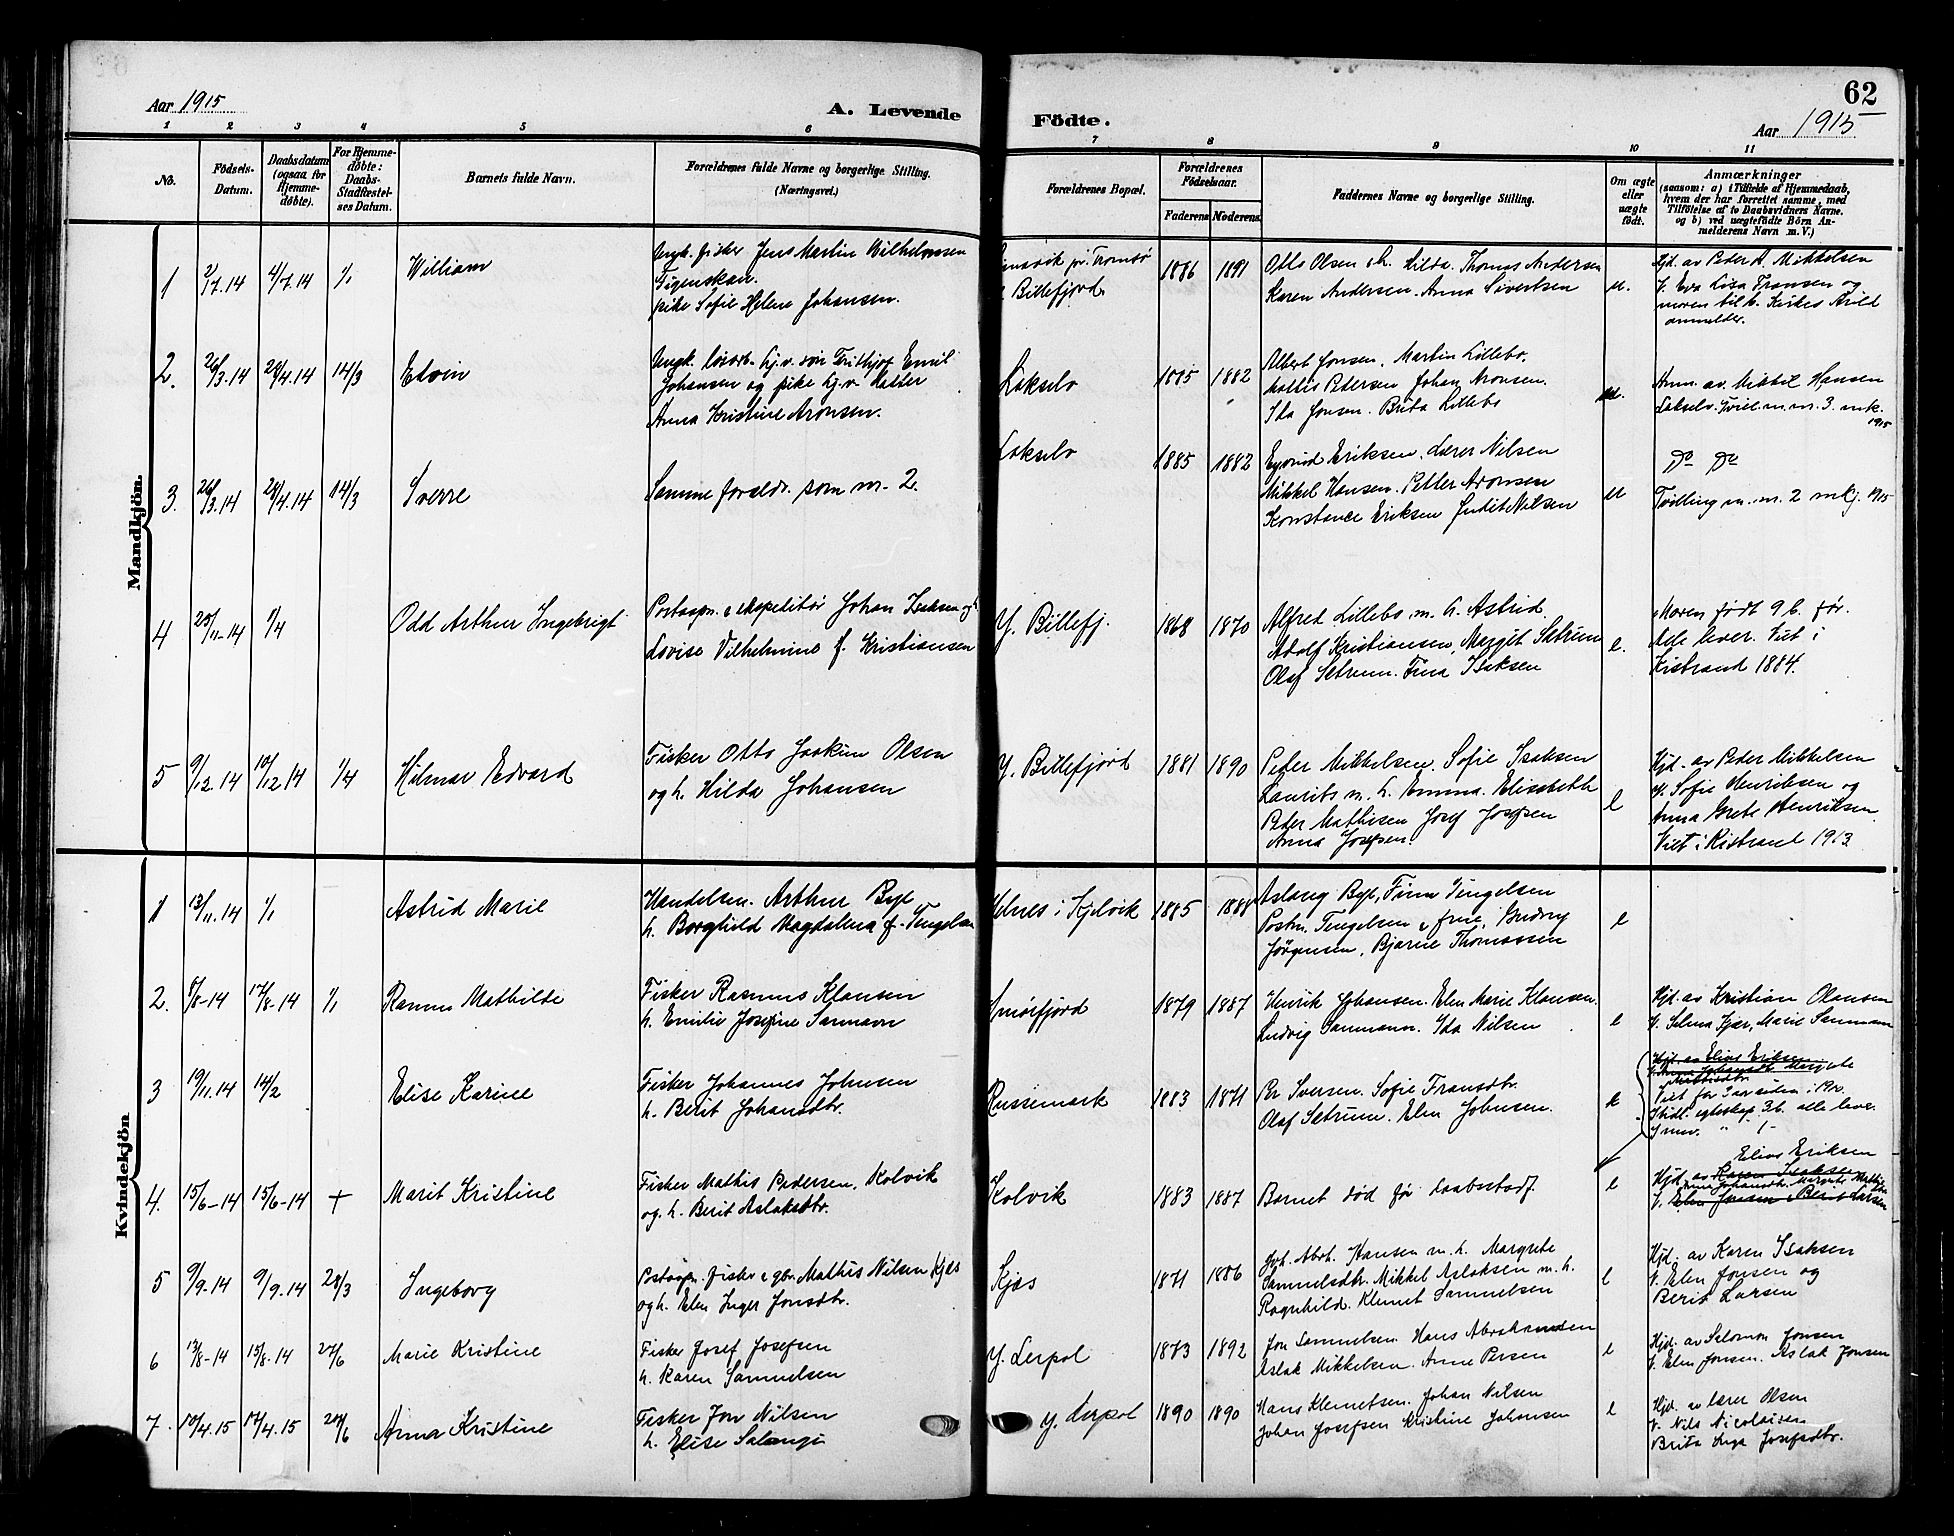 Aar 1915
A. Levende
Födte.
62
Aar 1915
1 2 3 4 5 6 7 8 9 10 11
No.
Födsels-
Datum.
Daabsdatum
(ogsaa for
Hjemme-
döbte).
For Hjemme-
döbte:
Daabs-
Stadfæstel-
ses Datum.
Barnets fulde Navn.
Forældrenes fulde Navne og borgerlige Stilling.
(Næringsvei.)
Forældrenes Bopæl.
Forældrenes
Födselsaar.
Faderens Moderens
Faddernes Navne og borgerlige Stilling.
Om ægte
eller
uægte
født.
Anmærkninger
(saasom: a) i Tilfælde af Hjemmedaab,
hvem der har forrettet samme, med
Tilföielse af to Daabsvidners Navne.
og b) ved uægtefødte Börn An-
melderens Navn m. V.)
Mandkjön.
1
2/7.14
4/7.14
1/1
William
Ungk. fisker Jens Martin Wilhelmsen
pike Sofie Helene Johansen.
pr. Tromsø
Billefjord
1886
1891
Otto Olsen o h. Hilda. Thomas Andersen
Karen Andersen. Anna Sivertsen
u.
Hjd. av Peder A. Mikkelsen
V. Eva Lisa Fransen og
moren til b. Kirkes Arild
anmelder.
2.
26/3.14
28/4.14
14/3
Edvin
Ungk. løsarb. hj.v. søn Frithjof Emil
Johansen og pike hj.v. datter
Anna Kristine Aronsen.
Lakselv
1885
1882
Albert Jonsen. Martin Lillebo.
Mattis Pedersen Johan Aronsen.
Ida Jonsen. Brita Lillebo
u.
Anm. av Mikkel Hansen
Lakselv. Tvill. m. nr. 3. mk.
1915
3.
26/3.14
28/4.14
14/3
Sverre
Samme foreldr. som nr. 2.
Lakselv
1885
1882
Eyvind Eriksen. Lærer Nilsen
Mikkel Hansen. Petter Aronsen
Konstance Eriksen Judit Nilsen
u
Do Do
Tvilling m. nr. 2 mkj. 1915
4
25/11.14
1/4
Odd Arthur Ingebrigt
Postaapn. & ekspeditør Johan Isaksen og
Lovise Vilhelmine f. Kristiansen
Y. Billefj.
1868
1870
Alfred Lillebo m. h. Astrid
Adolf Kristiansen, Margit Sætrum
Olaf Sætrum. Fina Isaksen
e.
Moren født 9 b. før.
Alle lever. Viet i
Kistrand 1884.
5
9/12.14
10/12 14
1/4
Hilmar Edvard
Fisker Otto Joakim Olsen
og h. Hilda Johansen
Y. Billefjord
1881
1890
Peder Mikkelsen. Sofie Isaksen
Laurits m. h. Emma. Elisabeth
Peder Mathisen Josef Josefsen
Anna Josefsen.
e
Hjd. av Peder Mikkelsen
v. Sofie Henriksen og
Anna Grete Henriksen
Viet i Kistrand 1913
Kvindekjön
1
13/11.14
1/1
Astrid Marie
Handelsm. Arthur Bye
h. Borghild Magdalena f. Tengelsen
Helnes i Kjelvik
1885
1888
Aslaug Bye, Finn Tengelsen
Postm. Tengelsen & frue, Gudny
Jørgensen, Bjarne Thomassen
e
2.
8/8-14
17/8-14
1/1
Ranna Mathilde
Fisker Rasmus Klausen
h. Emilie Josefine Sarmann
Smørfjord
1879
1887
Henrik Johansen. Elen Marie Klausen.
Ludvig Sarmann. Ida Nilsen
e
Hjd. av Kristian Olausen
V. Selma Kjær, Marie Sarmann
3
19/11.14
14/2
Elise Karine
Fisker Johannes Johnsen
h. Berit Johansdtr.
Russemark
1883
1871
Per Iversen. Sofie Fransdtr.
Olaf Sætrum. Elen Johnsen.
e
Hjd. av Elias Eriksen
V. Anna Johansdtr. Margrete
Mathisdtr.
Viet før
Tidl. egteskap 3 b. alle lever.
I nuv. " 1-
4.
15/6-14
15/6-14
+
Marit Kristine
Fisker Mathis Pedersen, Kolvik
og h. Berit Aslaksdtr.
Kolvik
1883
1887
Barnet død før daabsstadf.
e
Elias Eriksen
Hjd. av Karen Isaksen
Anna Johansdtr. Margrete Mathisd.
V. Elen Jonsen & Berit Larsen
5
9/9.14
9/9.14
28/3
Ingeborg
Postaapn. fisker & gbr. Mathis Nilsen Kjæs
og h. Elen Inger Jonsdtr.
Kjæs
1871
1886
Joh. Abrh. Hansen m. h. Margrete
Samuelsdtr. Mikkel Aslaksen m. h.
Ragnhild. Klemet Samuelsen
e
Hjd. av Karen Isaksen
V. Elen Jonsen og
Berit Larsen
6
13/8-14
15/8.14
27/6
Marie Kristine
Fisker Josef Josefsen
h. Karen Samuelsen
Y. Lerpol
1873
1892
Jon Samuelsen. Hans Abrahamsen
Aslak Mikkelsen. Anne Persen
e
Hjd. av Salomon Jonsen
V. Elen Jonsen. Aslak Jonsen
7.
10/4.15
12/4.15
27/6
Anna Kristine
Fisker Jon Nilsen
h. Elise Salangi
Y. Lerpol
1890
1890
Hans Klemetsen. Johan Nilsen
Johan Josefsen Kristine Johansen
e
Hjd. av lærer Olsen
V. Nils Nicolaisen
Brita Inga Josefsdtr.